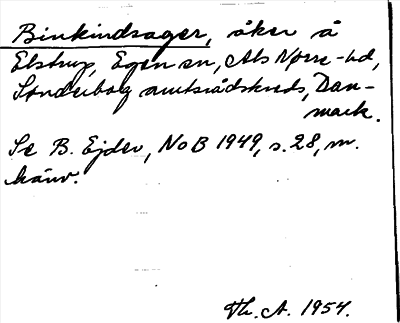 Binkindsager, åker å
Elstrup, Egen sn, Als Nørre-hd,
Sønderborg amtsrådskreds, Dan-
mark.
Se B. Ejder, NoB 1949, s. 28, m.
hänv.
Th. A. 1954.